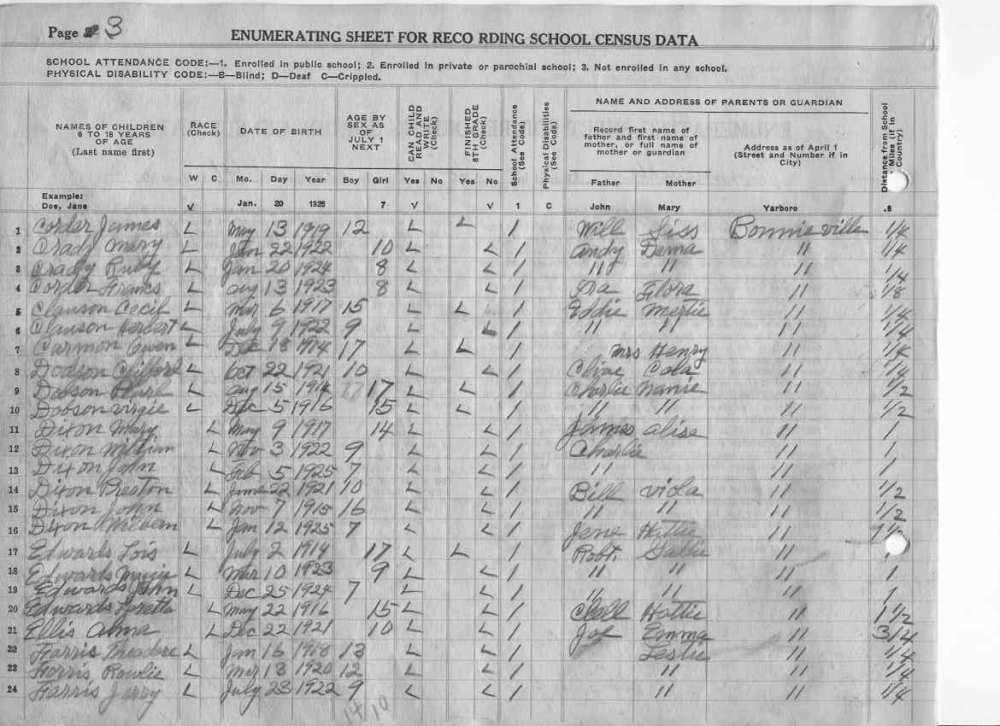 Page 3
ENUMERATING SHEET FOR RECO RDING SCHOOL CENSUS DATA
SCHOOL ATTENDANCE CODE:—1. Enrolled in public school; 2. Enrolled in private or parochial school; 3. Not enrolled in any school.
PHYSICAL DISABILITY CODE:—B—Blind; D—Deaf C—Crippled.
NAMES OF CHILDREN 6 TO 18 YEARS OF AGE (Last name first) RACE (Check) DATE OF BIRTH AGE BY SEX AS OF JULY 1 NEXT CAN CHILD READ AND WRITE (Check) FINISHED 8TH GRADE (Check) School Attendance (See Code) Physical Disabilities (See Code) NAME AND ADDRESS OF PARENTS OR GUARDIAN Distance from School Miles (if in Country)
Record first name of father and first name of mother, or full name of mother or guardian Address as of April 1 (Street and Number if in City)
W C Mo. Day Year Boy Girl Yes No Yes No Father Mother
Example: Doe, Jane V Jan. 20 1925 7 V V 1 C John Mary Yarboro .8
1 Corder James L May 13 1919 12 L L 1 Will Siss Bonnieville 1/4
2 Crady Mary L Jan 22 1922 10 L L 1 Andy Dema " 1/4
3 Crady Ruby L Jan 20 1924 8 L L 1 " " " 1/4
4 Corder Frances L Aug 13 1923 8 L L 1 Ira Flora " 1/8
5 Clauson Cecil L Mar 6 1917 15 L L 1 Eddie Mertie " 1/4
6 Clauson Herbert L July 9 1922 9 L L 1 " " " 1/4
7 Carmon Owen L Dec 18 1914 17 L L 1 Mrs Henry " 1/4
8 Dodson Clifford L Oct 22 1921 10 L L 1 Clive Cola " 1/4
9 Dobson L Aug 15 1914 17 L L 1 Charlie Nannie " 1/2
10 Dobson Virgie L Dec 5 1916 15 L L 1 " " " 1/2
11 Dixon Mary L May 9 1917 14 L L 1 James Alise " 1
12 Dixon William L Nov 3 1922 9 L L 1 Charlie " 1
13 Dixon John L Feb 5 1925 7 L L 1 " " 1
14 Dixon Preston L June 22 1921 10 L L 1 Bill Viola " 1/2
15 Dixon John L Nov 7 1915 16 L L 1 " " " 1/2
16 Dixon L Jan 12 1925 7 L L 1 Jene Hattie "
17 Edwards Lois L July 2 1914 17 L L 1 Robt. Sallie "
18 Edwards L Mar 10 1923 9 L L 1 " " " 1
19 Edwards John L Dec 25 1924 7 L L 1 " " " 1
20 Edwards Loretta L May 22 1916 15 L L 1 Hattie " 1 1/2
21 Ellis Alma L Dec 22 1921 10 L L 1 Joe Emma " 3/4
22 Harris Theodore L Jan 16 1918 13 L L 1 Leslie " 1/4
23 Harris Rowlie L Mar 13 1920 12 L L 1 " " 1/4
24 Harris Jerry L July 23 1922 9 L L 1 " " 1/4
14 10